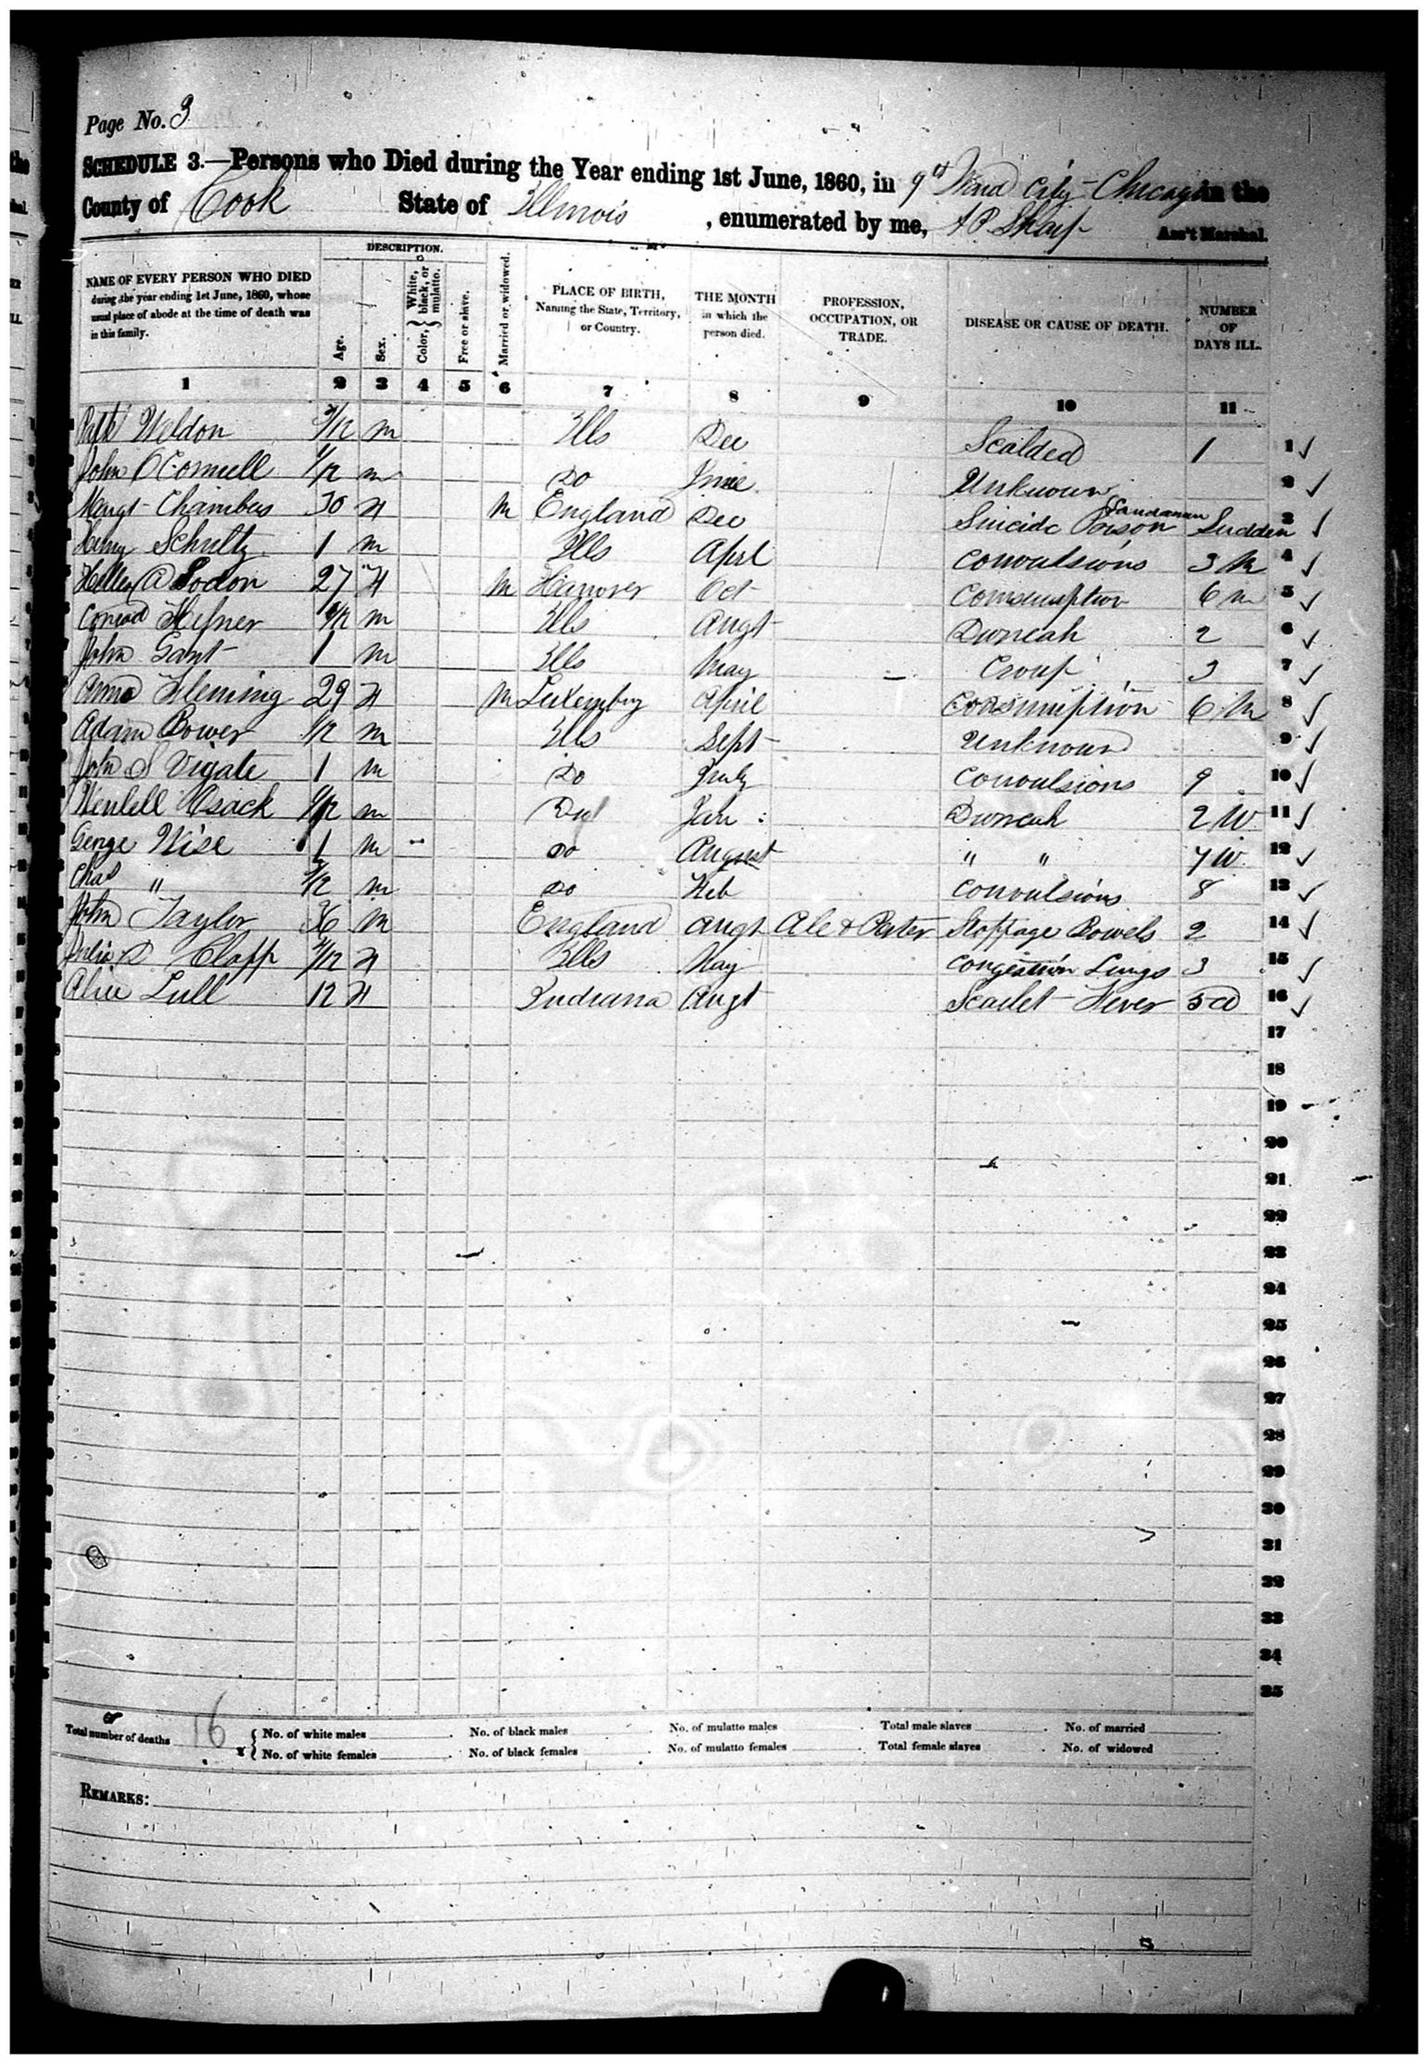 Page No. 3
SCHEDULE 3.—Persons who Died during the Year ending 1st June, 1860, in 9th Ward City Chicago in the
County of Cook State of Illinois, enumerated by me, A P Sharp Ass't Marshal.
DESCRIPTION.
NAME OF EVERY PERSON WHO DIED during the year ending 1st June, 1860, whose usual place of abode at the time of death was in this family.
Age.
Sex.
Color, { White, black, or mulatto.
Free or slave.
Married or widowed.
PLACE OF BIRTH, Naming the State, Territory, or Country.
THE MONTH in which the person died.
PROFESSION, OCCUPATION, OR TRADE.
DISEASE OR CAUSE OF DEATH.
NUMBER OF DAYS ILL.
1 2 3 4 5 6 7 8 9 10 11
Weldon m Ills Dec Scalded 1 1
John O'Connell 1/12 m Do June Unknown 2
Margt Chambers 30 F M England Dec Suicide Poison Sudden 3
Henry Schultz 1 m Ills Aprl Convulsions 3 M 4
27 F M Hanover Oct Consumption 6 m 5
Conrad Hefner m Ills Augt 2 6
John Gant 1 m Ills May Croup 3 7
Anna Fleming 29 F M April Consumption 6 M 8
Adam Bower 1/12 m Ills Sept Unknown 9
John S Vigate 1 m Do July Convulsions 9 10
m Jan 2 W 11
George Wise 1 m Do August " " W 12
Chas " m Do Feb Convulsions 8 13
John Taylor 36 m England Augt Ale & Porter Stoppage Bowels 2 14
Clapp F Ills May Congestion Lungs 3 15
Alice Lull 12 F Indiana Augt Scarlet Fever 5 D 16
17
18
19
20
21
22
23
24
25
26
27
28
29
30
31
32
33
34
35
Total number of deaths 16 { No. of white males No. of black males No. of mulatto males Total male slaves No. of married
{ No. of white females No. of black females No. of mulatto females Total female slaves No. of widowed
REMARKS: